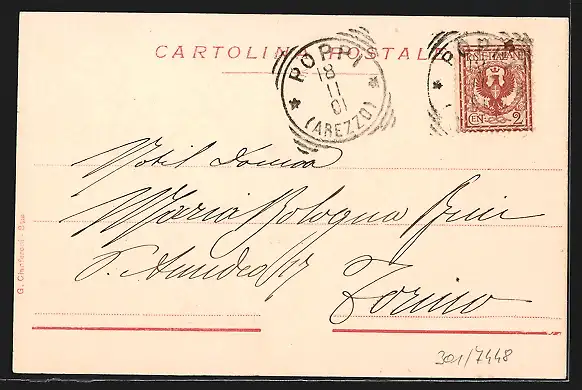 CARTOLINA POSTALE
POPPI
18
11
01
(AREZZO)
POSTE ITALIANE
CEN. 2
Nobil Donna
Maria Bologna
S. Amedeo 17
Torino
301/7448